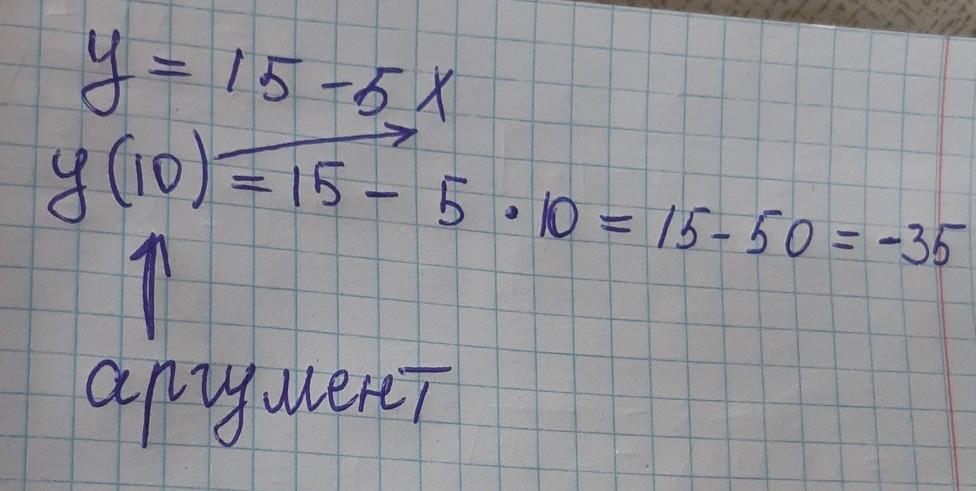 y = 15 - 5x
y(10) = 15 - 5 · 10 = 15 - 50 = -35
аргумент